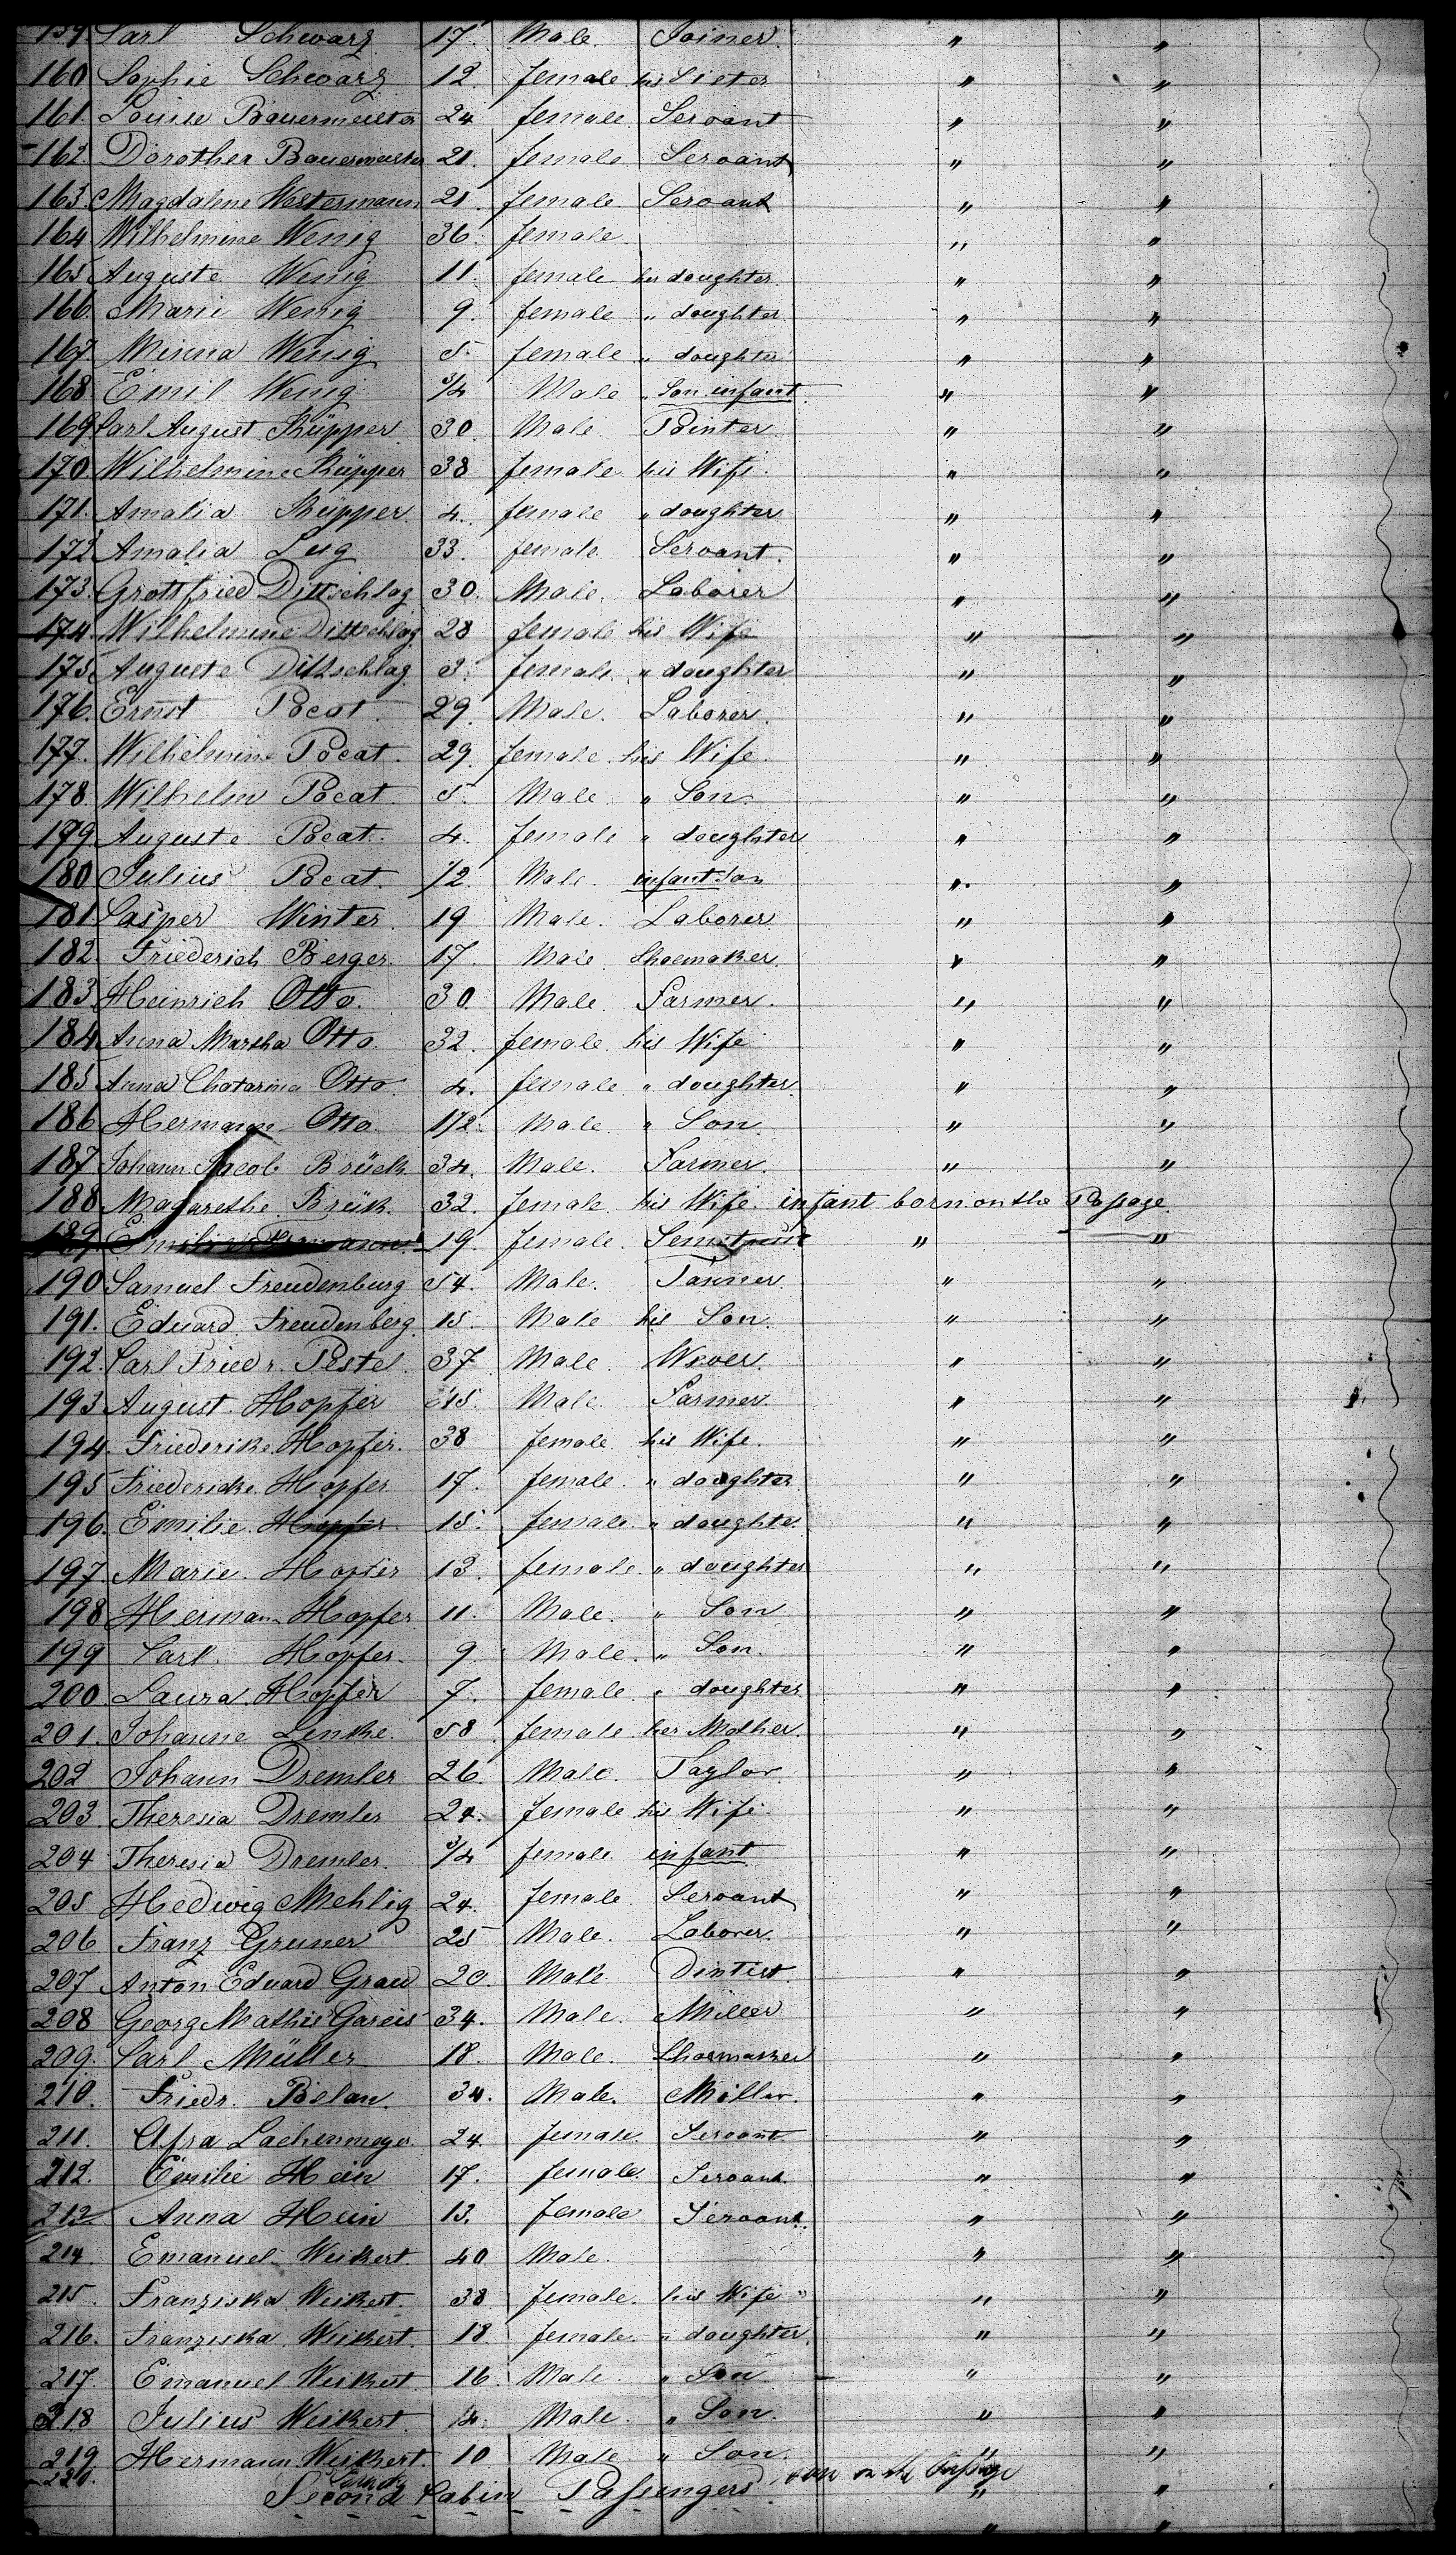 159. Carl Schwarz 17. Male. Joiner. " "
160 Sophie Schwarz 12. female his Sister " "
161. Louise Bauermeister 24 female. Servant " "
162. Dorothea Bauermeister 21. female. Servant " "
163. Magdalene Westermann 21. female. Servant " "
164 Wilhelmine Wenig 36. female. " "
165 Auguste Wenig 11. female her daughter. " "
166. Marie Wenig 9. female " daughter. " "
167. Minna Wenig 5. female " daughter " "
168 Emil Wenig 3/4 Male " Son infant. " "
169 Carl August Küpper. 30. Male. Pointer. " "
170. Wilhelmine Küpper 38 female his Wife. " "
171. Amalia Küpper. 4. female " daughter " "
172. Amalia Lug 33. female. Servant. " "
173. Grottfried Dittschlag 30. Male. Laborer " "
174. Wilhelmine Dittschlag. 28 female his Wife " "
175. Auguste Dittschlag. 3. female. " daughter " "
176. Ernst Pocat. 29. Male. Laborer. " "
177. Wilhelmine Pocat. 29. female his Wife. " "
178. Wilhelm Pocat. 5. Male " Son. " "
179 Auguste Pocat. 4. female " daughter " "
180 Julius Pocat. 1/2. Male. infant Son " "
181. Casper Winter. 19 Male. Laborer. " "
182. Friederich Berger. 17. Male Shoemaker. " "
183 Heinrich Otto. 30 Male. Farmer. " "
184. Anna Martha Otto. 32. female. his Wife " "
185. Anna Chatarina Otto. 4. female. " daughter. " "
186 Hermann Otto 1/2. Male. " Son. " "
187 Johann Jacob Brück 34. Male. Farmer. " "
188 Magarethe Brück. 32. female. his Wife. infant born on the Passage.
189. 19. female. " "
190 Samuel Freudenburg 54. Male. Tanner. " "
191. Eduard Freudenberg. 15. Male his Son. " "
192. Carl Friedr. Pestel. 37 Male. Wever. " "
193 August Hopfer 45. Male. Farmer. " "
194. Friederike Hopfer. 38 female his Wife. " "
195 Friedericke Hopfer 17. female. " daughter " "
196. Emilie Hopfer. 15. female. " daughter. " "
197. Marie Hopfer 13. female. " daughter " "
198 Hermann Hopfer. 11. Male. " Son " "
199 Carl. Hopfer. 9. Male. " Son. " "
200 Laura Hopfer 7. female. " daughter. " "
201. Johanne Linke. 58 female. her Mother. " "
202 Johann Dremler 26. Male. Taylor. " "
203 Theresia Dremler 24. female his Wife. " "
204 Theresia Dremler. 3/4 female. infant " "
205 Hedwig Mehlig 24. female. Servant " "
206 Franz Gruner 25 Male. Laborer. " "
207 Anton Eduard Grau 20. Male. Dintist. " "
208 Georg Mathis Gareis 34. Male. Miller " "
209. Carl Müller 18. Male. " "
210. Friedr. Belau. 34. Male. Miller. " "
211. Afra Lachenmeyer. 24. female. Servant " "
212. Emilie Hein 17. female. Servant. " "
212 Anna Hein 13. female Servant. " "
214. Emanuel Weikert 40 Male. " "
215. Franziska Weikert. 38. female. his Wife " " "
216. Franziska Weikert. 18. female. " daughter. " "
217. Emanuel Weikert 16. Male. " Son " "
218 Julius Weikert. 14. Male. " Son. " "
219. Hermann Weikert. 10 Male " Son. " "
220. born on the Passage
Second Cabin Passengers " "
" "